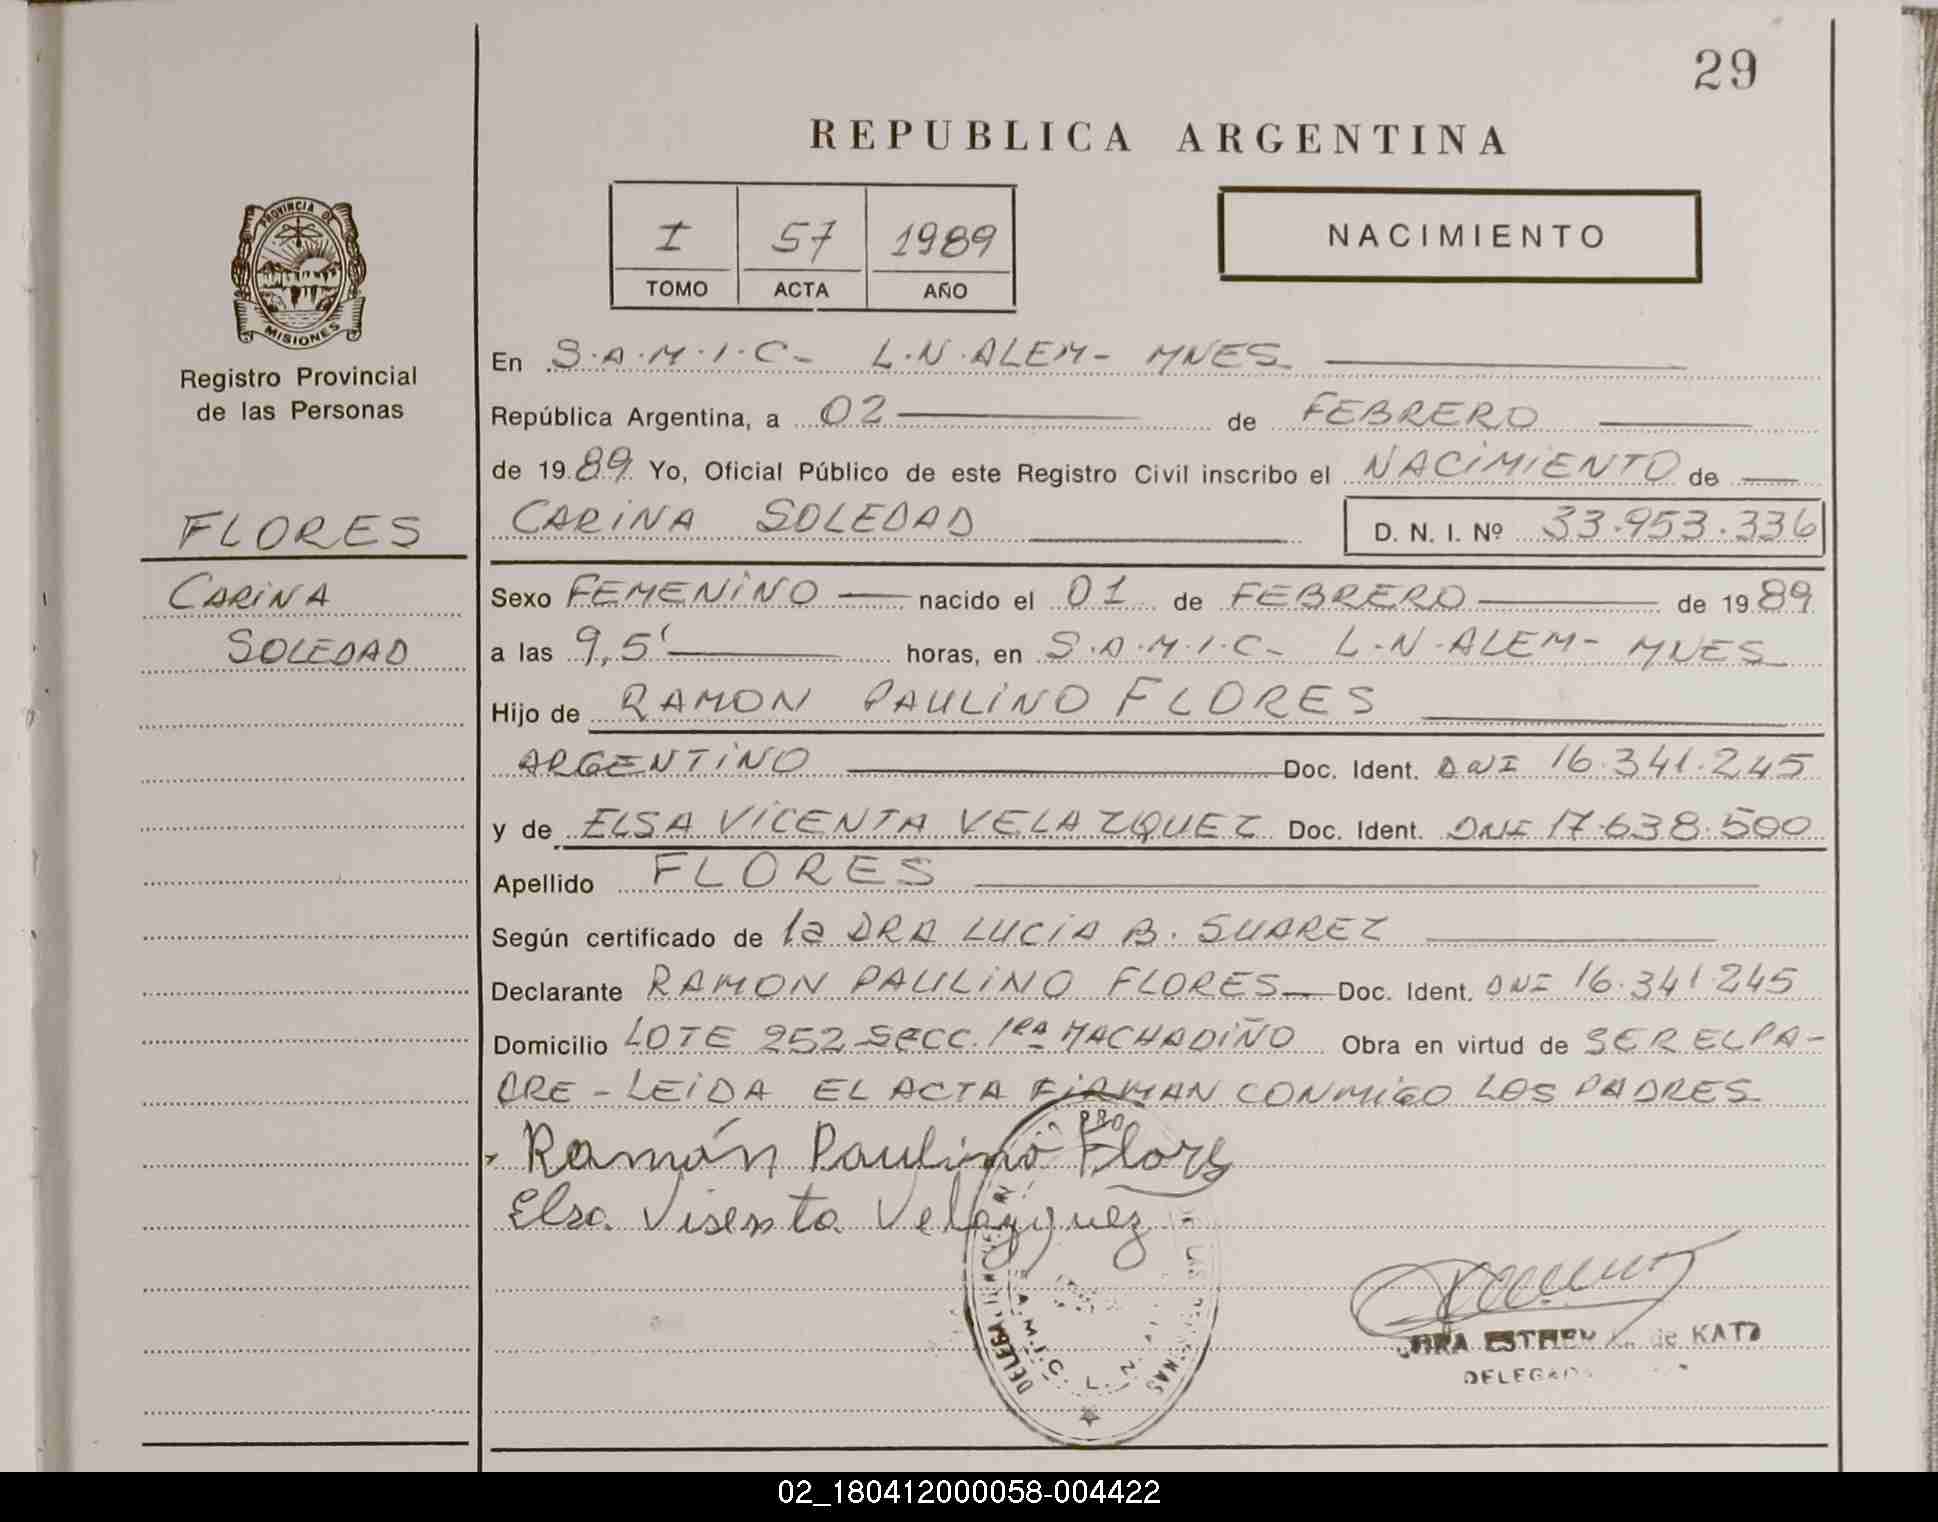 29
REPUBLICA ARGENTINA
I 57 1989
TOMO ACTA AÑO
NACIMIENTO
PROVINCIA DE
MISIONES
Registro Provincial
de las Personas
FLORES
CARINA
SOLEDAD
En S.A.M.I.C- L.N.ALEM- MNES
República Argentina, a 02 de FEBRERO
de 1989 Yo, Oficial Público de este Registro Civil inscribo el NACIMIENTO de
CARINA SOLEDAD D. N. I. Nº 33.953.336
Sexo FEMENINO nacido el 01 de FEBRERO de 1989
a las 9,5' horas, en S.A.M.I.C- L.N.ALEM- MNES
Hijo de RAMON PAULINO FLORES
ARGENTINO Doc. Ident. DNI 16.341.245
y de ELSA VICENTA VELAZQUEZ Doc. Ident. DNI 17.638.500
Apellido FLORES
Según certificado de la DRA LUCIA B. SUAREZ
Declarante RAMON PAULINO FLORES Doc. Ident. DNI 16.341.245
Domicilio LOTE 252 SECC. 1RA MACHADIÑO Obra en virtud de SER EL PA-
DRE - LEIDA EL ACTA FIRMAN CONMIGO LOS PADRES
Ramón Paulino Flores
Elsa Visenta Velazquez
S.A.M.I.C. L.
ESTHER de KATZ
02_180412000058-004422